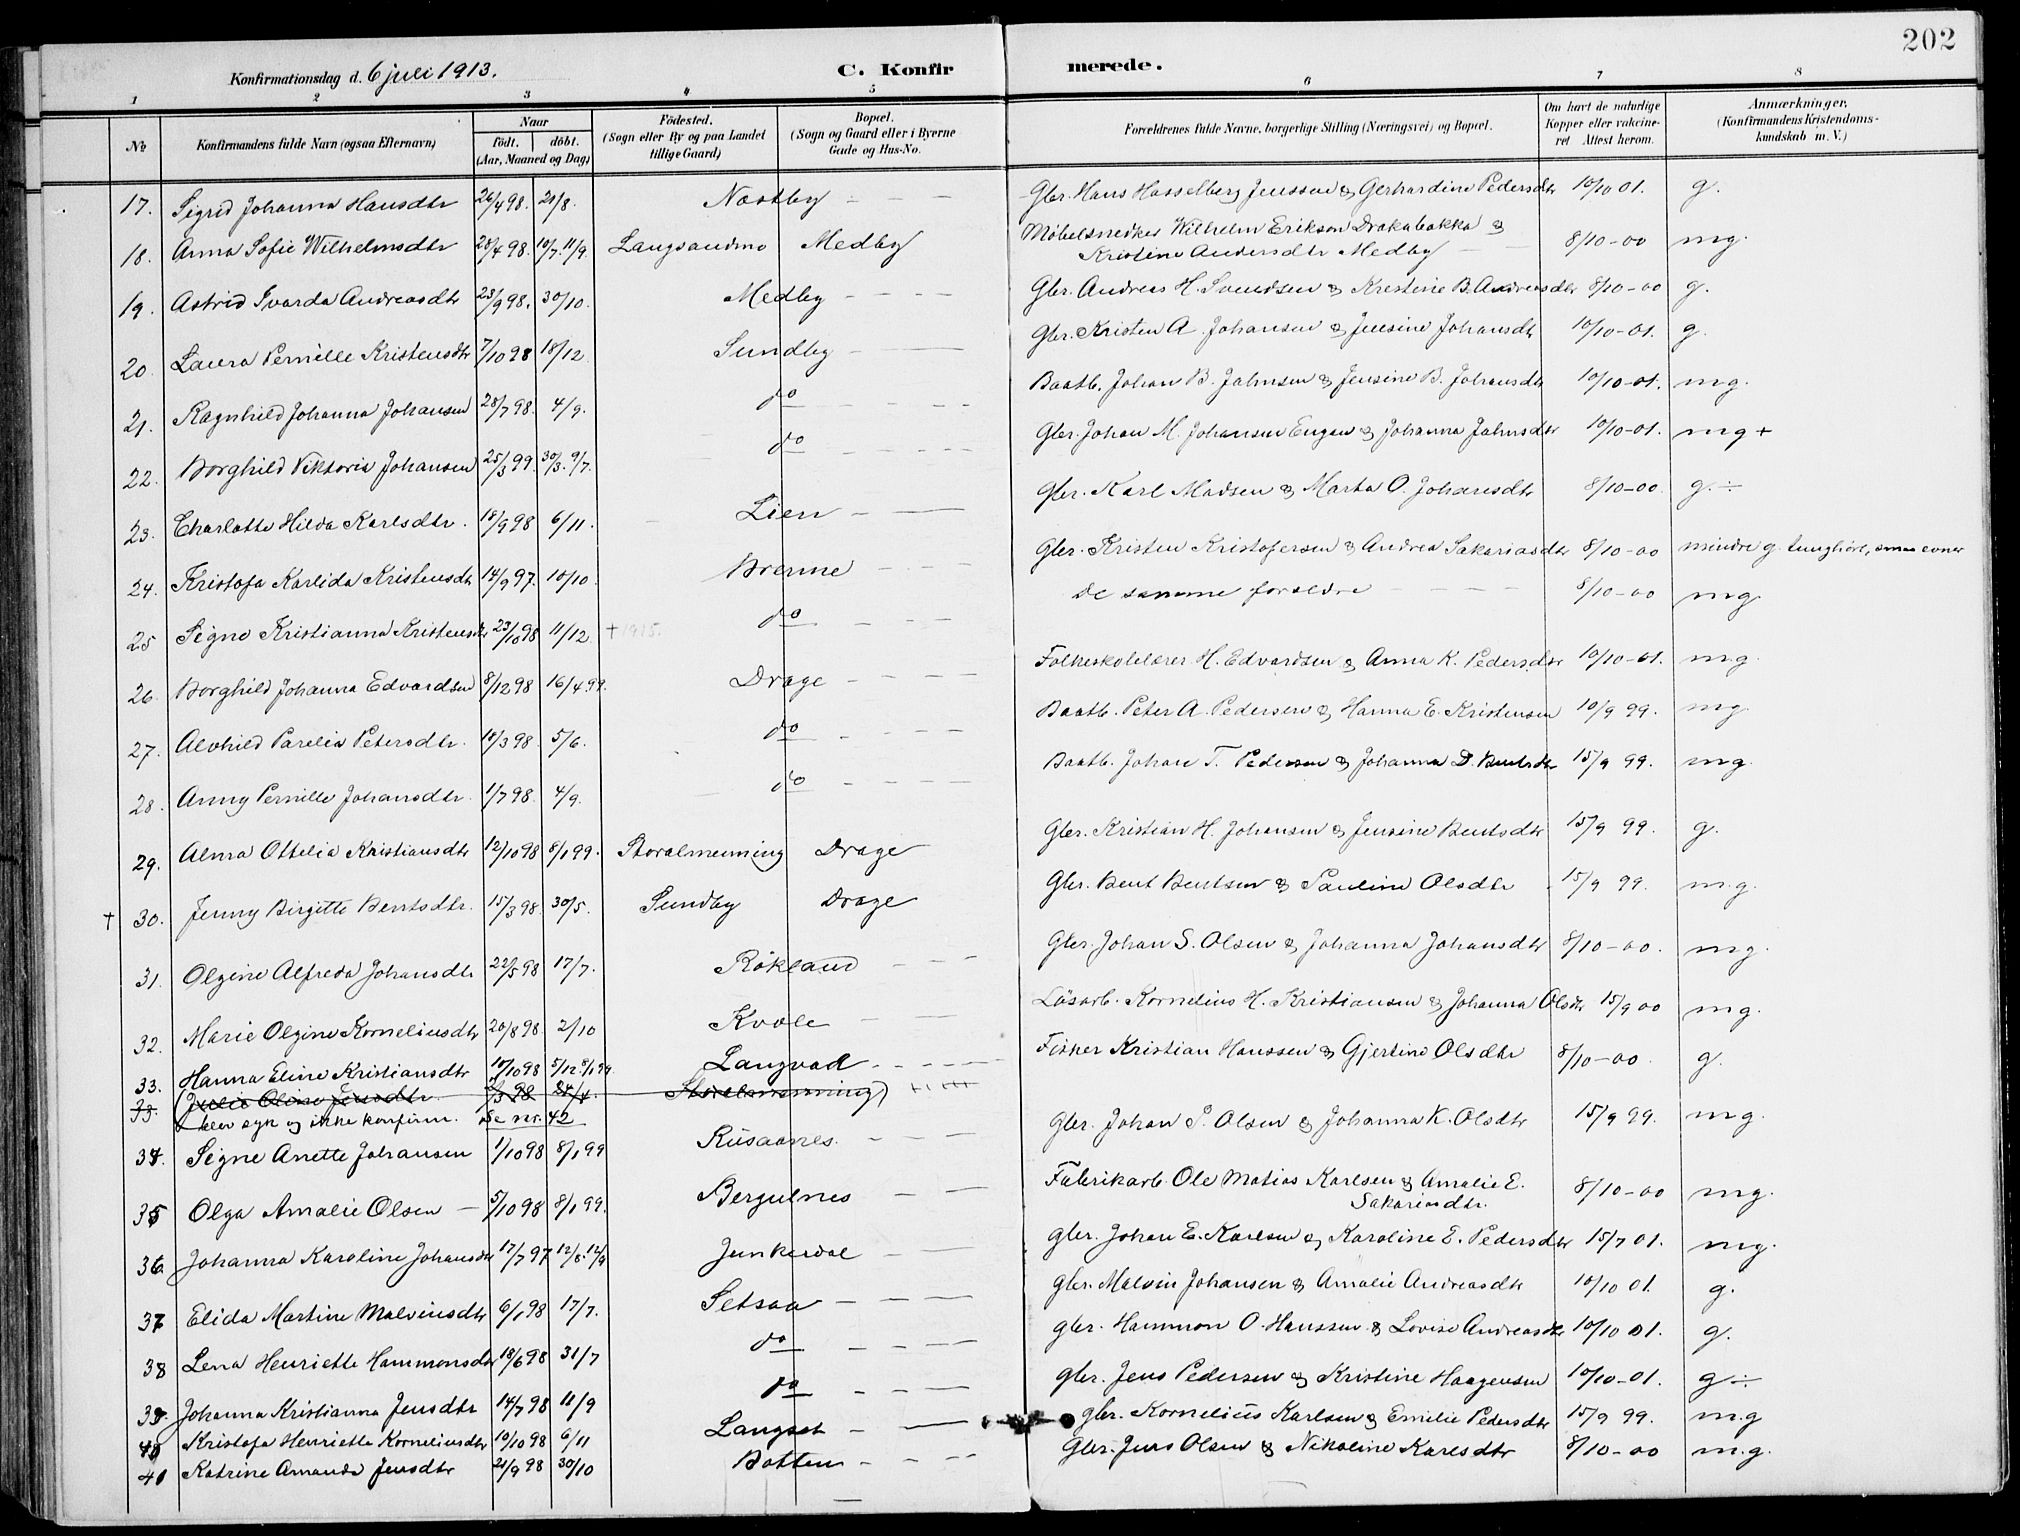 202
Konfirmationsdag d. 6 juli 1913. C. Konfirmerede.
1 2 3 4 5 6 7 8
No Konfirmandens fulde Navn (ogsaa Efternavn) Naar födt. döbt. (Aar, Maaned og Dag) Födested. (Sogn eller By og paa Landet tillige Gaard) Bopæl. (Sogn og Gaard eller i Byerne Gade og Hus-No. Forældrenes fulde Navne, borgerlige Stilling (Næringsvei) og Bopæl. Om havt de naturlige Kopper eller vaccineret Attest herom. Anmærkninger, (Konfirmandens Kristendomskundskab m. V.)
17. Sigrid Johanna Hansdtr 26/4 98. 21/8. Næstby Gbr. Hans Hasselberg Jenssen & Gerhardine Pedersdtr 10/10 01. g.
18. Anna Sofie Wilhelmsdtr 28/4 98. 10/7. 11/9. Langsandmo Medby Möbelsnedker Wilhelm Erikson Drakabakka &
Kristine Andersdtr Medby 8/10-00 mg.
19. Astrid Svarda Andreasdtr 23/9 98. 30/10. Medby Gbr. Andreas H. Svendsen & Kristine B. Andreasdtr 8/10-00 g.
20. Laura Pernille Kristensdtr 7/10 98 18/12 Sundby Gbr. Kristen A. Johansen & Jensine Johansdtr 10/10-01. g.
21. Ragnhild Johanna Johansen 28/7 98. 4/9. do Baatb. Johan B. Jahnsen & Jensine B. Johansdtr 10/10-01. mg.
22. Borghild Viktoria Johansen 25/3 99. 30/3. 9/7. do Gbr. Johan M. Johansen Engan & Johanna Jahnsdtr 10/10-01. mg +
23. Charlotte Hilda Karlsdtr. 18/9 98 6/11. Lien Gbr. Karl Madsen & Marta O. Johansdtr 8/10-00 g. ÷
24. Kristofa Karlida Kristensdtr 14/9 97. 10/10. Brenne Gbr. Kristen Kristofersen & Andrea Sakariasdtr 8/10-00 mindre g. tunghört, smaa evner
25 Signe Kristianna Kristensdtr 23/10 98 11/12 + 1915. do De samme forældre 8/10-00 mg
26. Borghild Johanna Edvardsen 8/12 98 16/4 99. Drage Folkeskolelærer H. Edvardsen & Anna K. Pedersdtr 10/10-01. mg.
27. Alvhild Parelia Petersdtr. 18/3 98. 5/6. do Baatb. Peter A. Pedersen & Hanna E. Kristensen 10/9 99. mg.
28. Anny Pernille Johansdtr. 1/7 98. 4/9. do Baatb. Johan T. Pedersen & Johanna D. Bentsdtr 15/9 99. mg.
29. Alma Ottelia Kristiansdtr 12/10 98 8/1 99. Storalmenning Drage Gbr. Kristian H. Johansen & Jensine Bentsdtr 15/9 99. g.
† 30. Jenny Birgitte Bentsdtr. 15/3 98. 30/5. Sundby Drage Gbr. Bent Bentsen & Pauline Olsdtr 15/9 99. m.g.
31. Olgine Alfreda Johansdtr 22/5 98 17/7. Røkland Gbr. Johan S. Olsen & Johanna Johansdtr 8/10-00. mg.
32. Marie Olgine Korneliusdtr 20/8 98 2/10 Kvæle Lösarb. Kornelius H. Kristiansen & Johanna Olsdtr 15/9 00 mg.
33. Hanna Eline Kristiansdtr 10/10 98 5/12. 8/1 99 Langvad Fisker Kristian Hanssen & Gjertine Olsdtr 8/10-00 g.
33 (Julie Oline Jensdtr. 2/3 98 24/4 Storalmenning)
blev syk og ikke konfirm. Se nr. 42
34. Signe Anette Johansen 1/10 98 8/1 99 Rusaanes Gbr. Johan P. Olsen & Johanna K. Olsdtr 15/9 99. mg.
35 Olga Amalie Olsen 5/10 98 8/1 99. Bergulnes Fabrikarb. Ole Matias Karlsen & Amalie E.
Sakariasdtr. 8/10-00 mg.
36 Johanna Karoline Johansdtr 17/7 97 12/8. 12/9 Junkerdal Gbr. Johan E. Karlsen & Karoline E. Pedersdtr 15/7 01. mg.
37 Elida Martine Malvinsdtr 6/1 98 17/7. Setsaa Gbr. Malvin Johansen & Amalie Andreasdtr 10/10 01. g.
38 Lena Henriette Hammonsdtr 18/6 98 31/7 do Gbr. Hammon O. Hanssen & Lovise Andreasdtr 10/10 01. g.
39. Johanna Kristianna Jensdtr 14/7 98 11/9 do Gbr. Jens Pedersen & Kristine Haagensen 10/10-01. g ÷
40 Kristofa Henriette Korneliusdtr 10/10 98 6/11 Langset Gbr. Kornelius Karlsen & Emilie Pedersdtr 15/9 99. m.g
41 Katrine Amanda Jensdtr 21/9 98 30/10 Botten Gbr. Jens Olsen & Nikoline Karlsdtr 8/10-00 m.g.